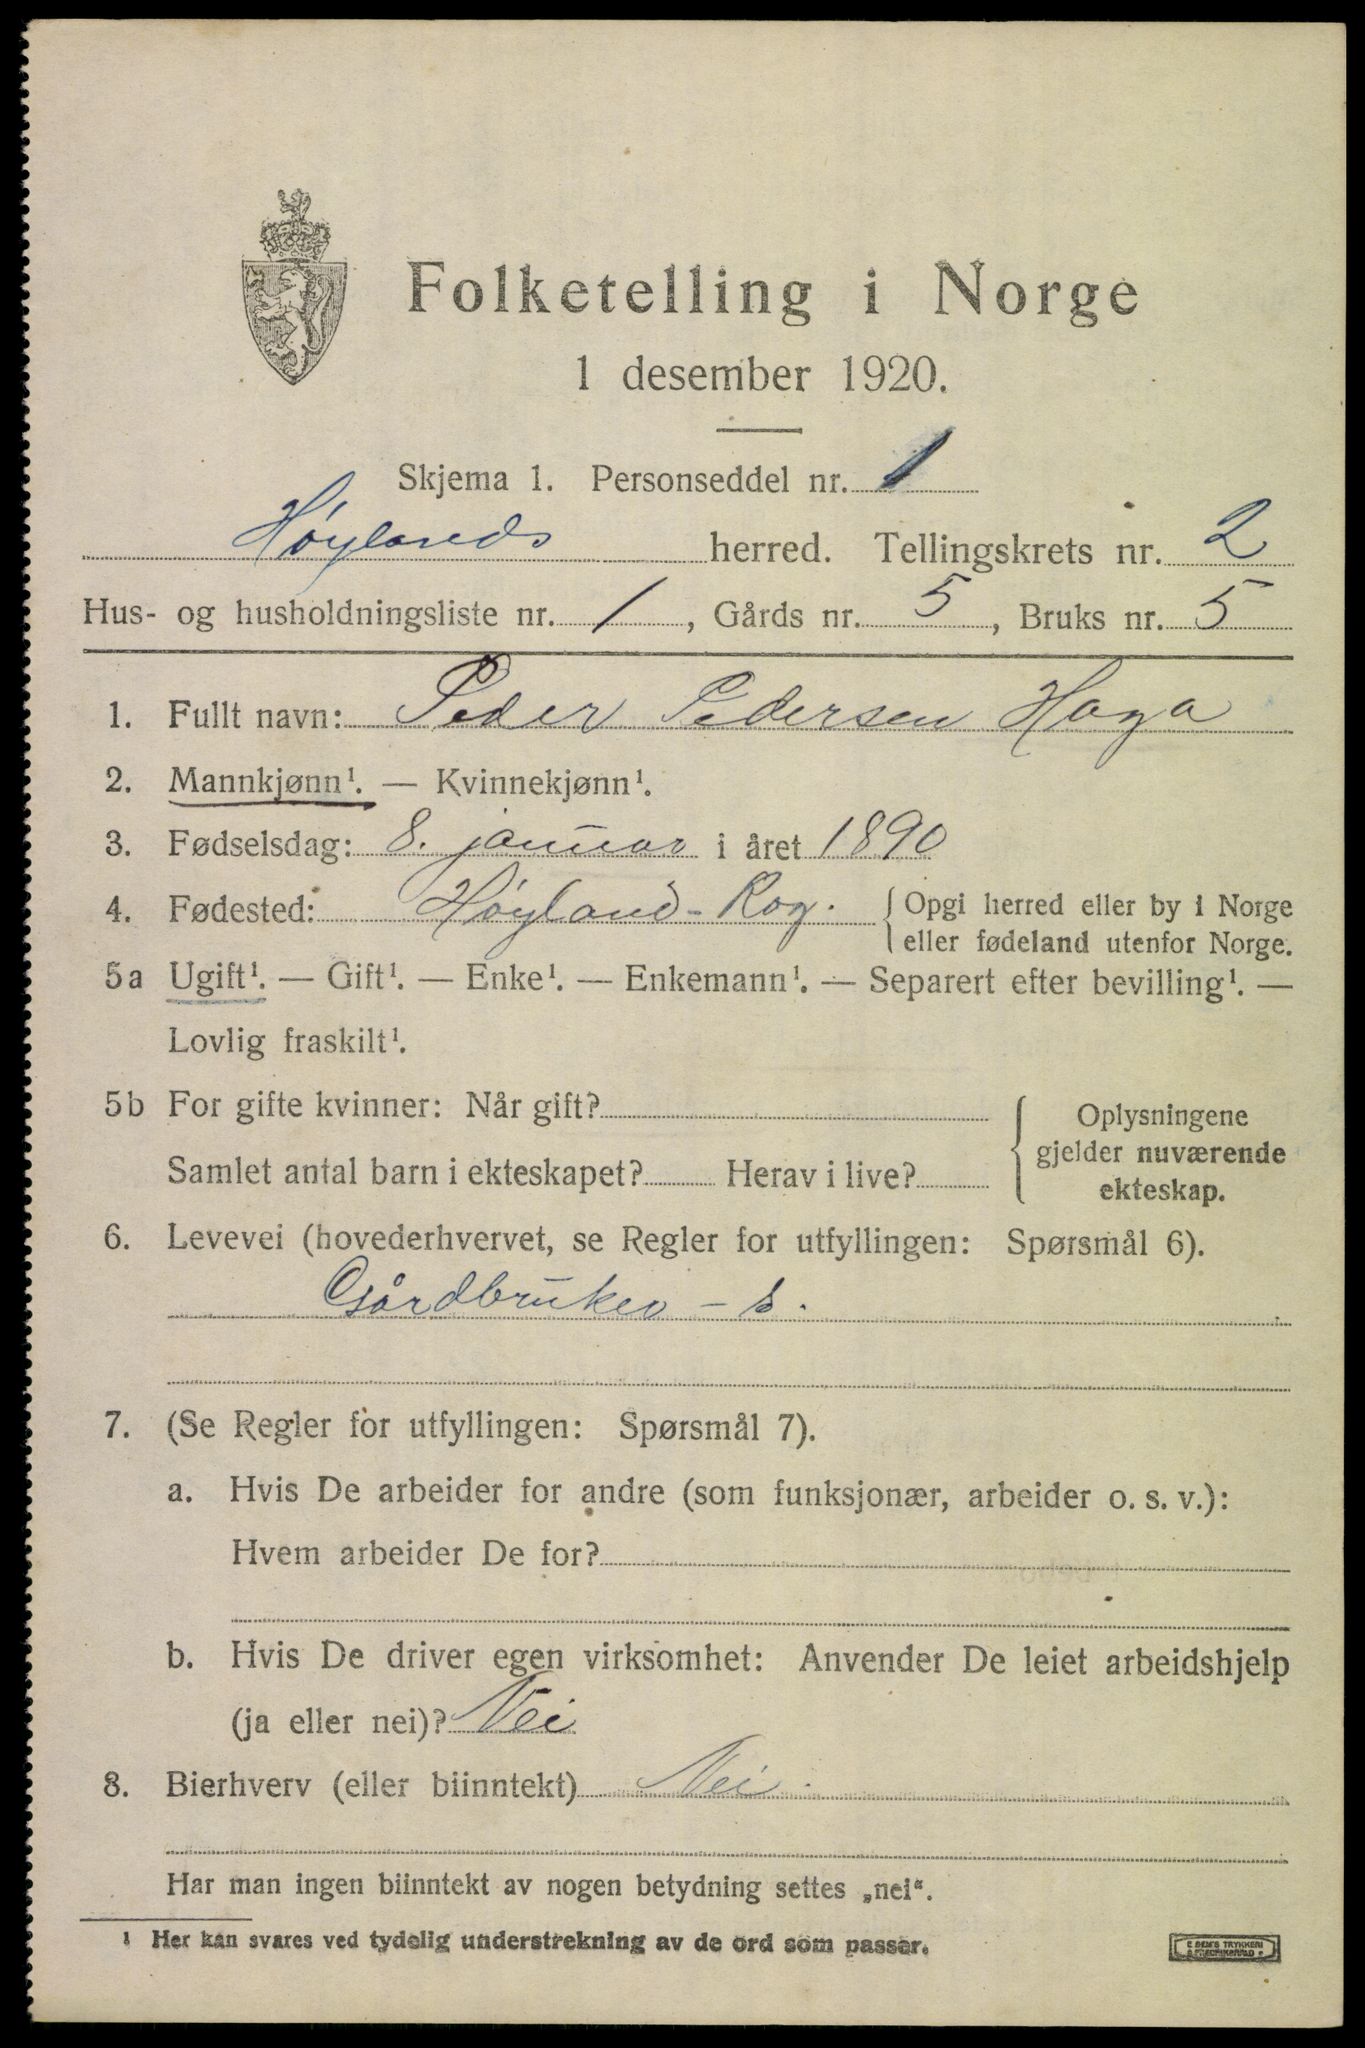 Folketelling i Norge
1 desember 1920.
Skjema 1. Personseddel nr. 1
Høylands herred. Tellingskrets nr. 2
Hus- og husholdningsliste nr. 1, Gårds nr. 5, Bruks nr. 5
1. Fullt navn: Peder Pedersen Haga
2. Mannkjønn¹. — Kvinnekjønn¹.
3. Fødselsdag: 8. januar i året 1890
4. Fødested: Høyland - Rog. { Opgi herred eller by i Norge
eller fødeland utenfor Norge.
5a Ugift¹. — Gift¹. — Enke¹. — Enkemann¹. — Separert efter bevilling¹. —
Lovlig fraskilt¹.
5b For gifte kvinner: Når gift?
Samlet antal barn i ekteskapet? Herav i live?
Oplysningene
gjelder nuværende
ekteskap.
6. Levevei (hovederhvervet, se Regler for utfyllingen: Spørsmål 6).
Gårdbruker - s.
7. (Se Regler for utfyllingen: Spørsmål 7).
a. Hvis De arbeider for andre (som funksjonær, arbeider o. s. v.):
Hvem arbeider De for?
b. Hvis De driver egen virksomhet: Anvender De leiet arbeidshjelp
(ja eller nei)? Nei
8. Bierhverv (eller biinntekt) Nei.
Har man ingen biinntekt av nogen betydning settes „nei“.
¹ Her kan svares ved tydelig understrekning av de ord som passer.